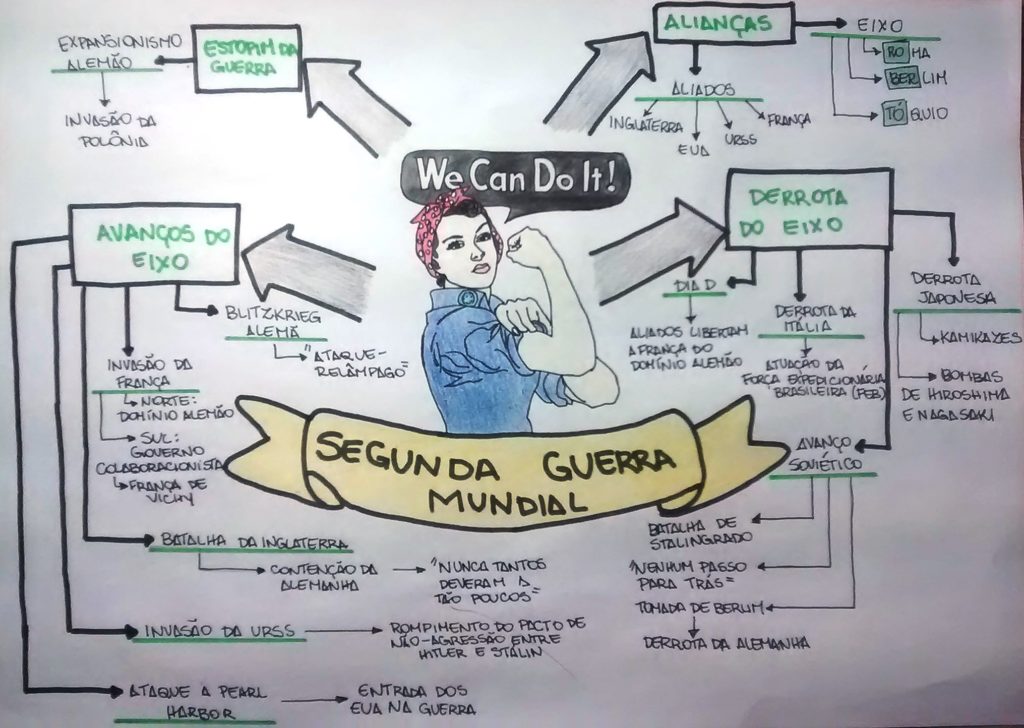 EXPANSIONISMO
ALEMÃO
INVASÃO DA
POLÔNIA
ESTOPIM DA
GUERRA
ALIANÇAS
EIXO
ROMA
BERLIM
TÓQUIO
ALIADOS
INGLATERRA
EUA
URSS
FRANÇA
We Can Do It!
AVANÇOS DO
EIXO
BLITZKRIEG
ALEMÃ
"ATAQUE-
RELÂMPAGO"
INVASÃO DA
FRANÇA
NORTE:
DOMÍNIO ALEMÃO
SUL:
GOVERNO
COLABORACIONISTA
FRANÇA DE
VICHY
DERROTA
DO EIXO
DIA D
ALIADOS LIBERTAM
A FRANÇA DO
DOMÍNIO ALEMÃO
DERROTA DA
ITÁLIA
ATUAÇÃO DA
FORÇA EXPEDICIONÁRIA
BRASILEIRA (FEB)
DERROTA
JAPONESA
KAMIKAZES
BOMBAS
DE HIROSHIMA
E NAGASAKI
SEGUNDA GUERRA
MUNDIAL
AVANÇO
SOVIÉTICO
BATALHA DE
STALINGRADO
"NENHUM PASSO
PARA TRÁS"
TOMADA DE BERLIM
DERROTA DA ALEMANHA
BATALHA DA INGLATERRA
CONTENÇÃO DA
ALEMANHA
"NUNCA TANTOS
DEVERAM A
TÃO POUCOS"
INVASÃO DA URSS
ROMPIMENTO DO PACTO DE
NÃO-AGRESSÃO ENTRE
HITLER E STÁLIN
ATAQUE A PEARL
HARBOR
ENTRADA DOS
EUA NA GUERRA